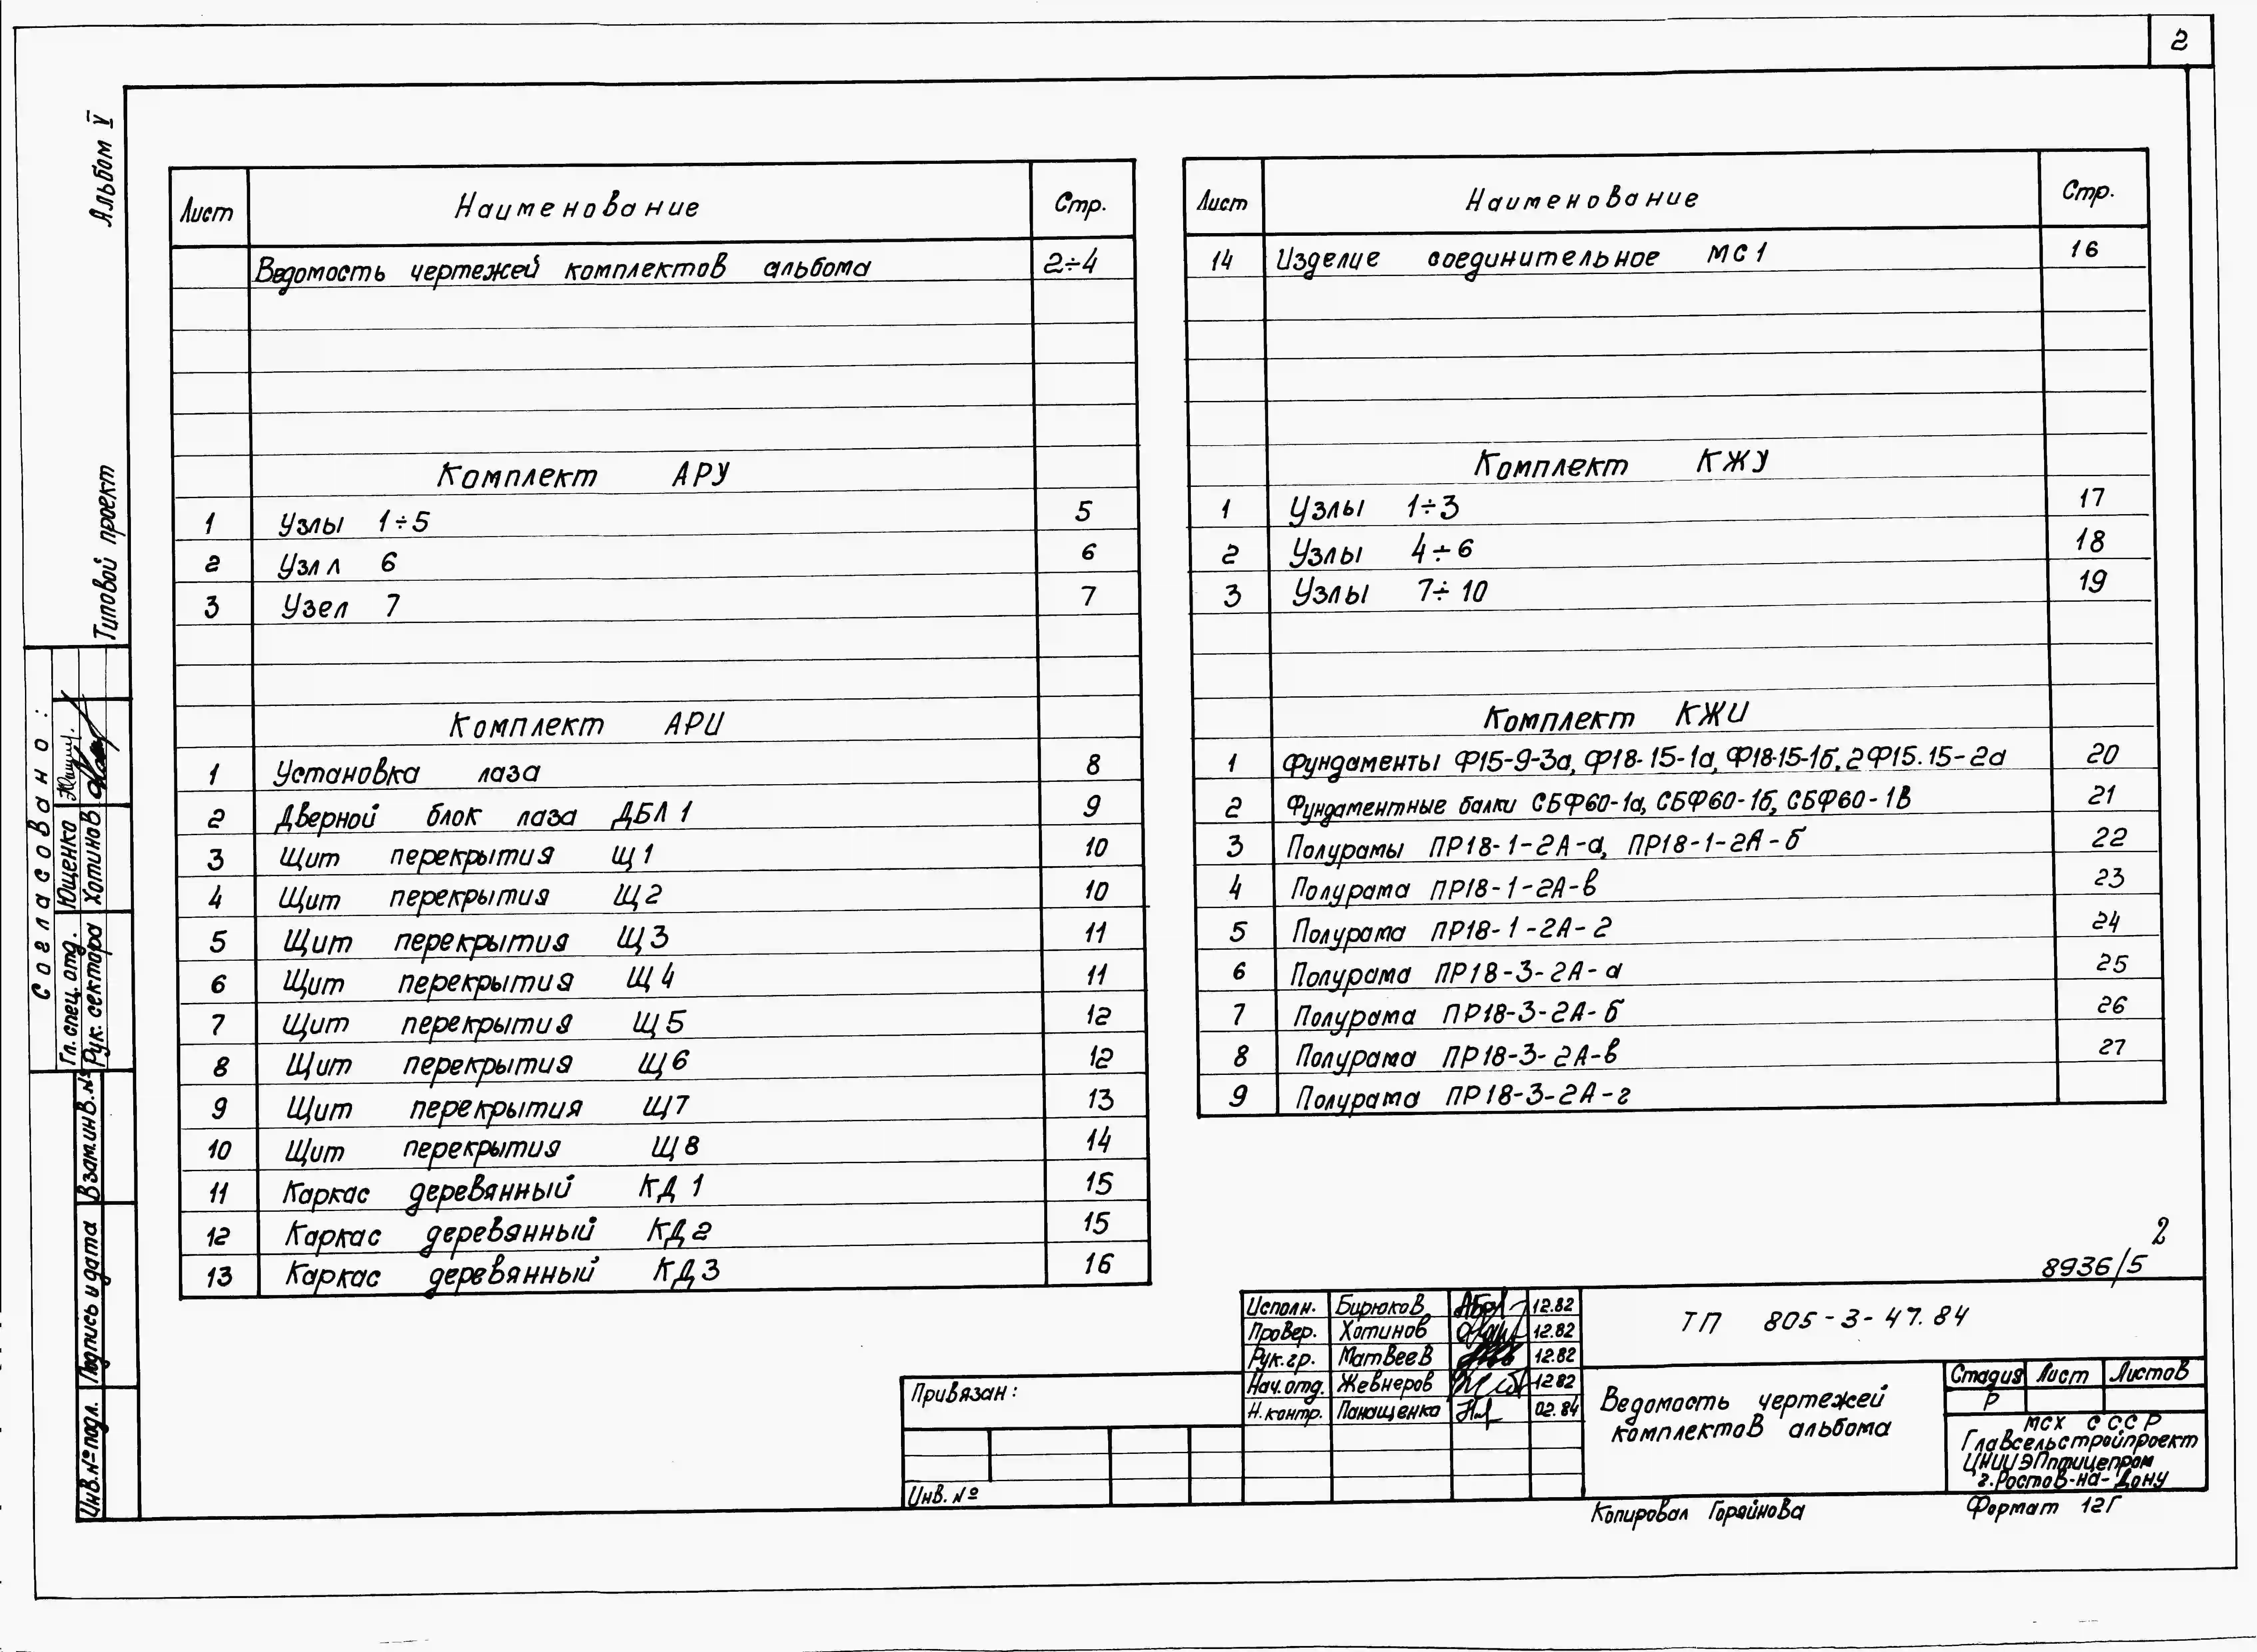 2
Альбом V
Типовой проект
Согласовано:
Гл. спец. отд. Ющенко
Рук. сектора Хотинов
Взам.инв.№
Подпись и дата
Инв.№ подл.
Лист Наименование Стр.
Ведомость чертежей комплектов альбома 2÷4
Комплект АРУ
1 Узлы 1÷5 5
2 Узлл 6 6
3 Узел 7 7
Комплект АРИ
1 Установка лаза 8
2 Дверной блок лаза ДБЛ1 9
3 Щит перекрытия Щ1 10
4 Щит перекрытия Щ2 10
5 Щит перекрытия Щ3 11
6 Щит перекрытия Щ4 11
7 Щит перекрытия Щ5 12
8 Щит перекрытия Щ6 12
9 Щит перекрытия Щ7 13
10 Щит перекрытия Щ8 14
11 Каркас деревянный КД1 15
12 Каркас деревянный КД2 15
13 Каркас деревянный КД3 16
Лист Наименование Стр.
14 Изделие соединительное МС1 16
Комплект КЖУ
1 Узлы 1÷3 17
2 Узлы 4÷6 18
3 Узлы 7÷10 19
Комплект КЖИ
1 Фундаменты Ф15-9-3а, Ф18-15-1а, Ф18-15-1б, 2Ф15.15-2а 20
2 Фундаментные балки СБФ60-1а, СБФ60-1б, СБФ60-1В 21
3 Полурамы ПР18-1-2А-а, ПР18-1-2А-б 22
4 Полурама ПР18-1-2А-в 23
5 Полурама ПР18-1-2А-г 24
6 Полурама ПР18-3-2А-а 25
7 Полурама ПР18-3-2А-б 26
8 Полурама ПР18-3-2А-в 27
9 Полурама ПР18-3-2А-г
2
8936/5
Исполн. Бирюков 12.82
Провер. Хотинов 12.82
Рук.гр. Матвеев 12.82
Нач.отд. Жевнеров 12.82
Н.контр. Панащенко 02.84
Привязан:
Инв. №
ТП 805-3-47.84
Ведомость чертежей
комплектов альбома
Стадия Лист Листов
Р
МСХ СССР
Главсельстройпроект
ЦНИИЭПптицепром
г.Ростов-на-Дону
Копировал Горяйнова Формат 12Г